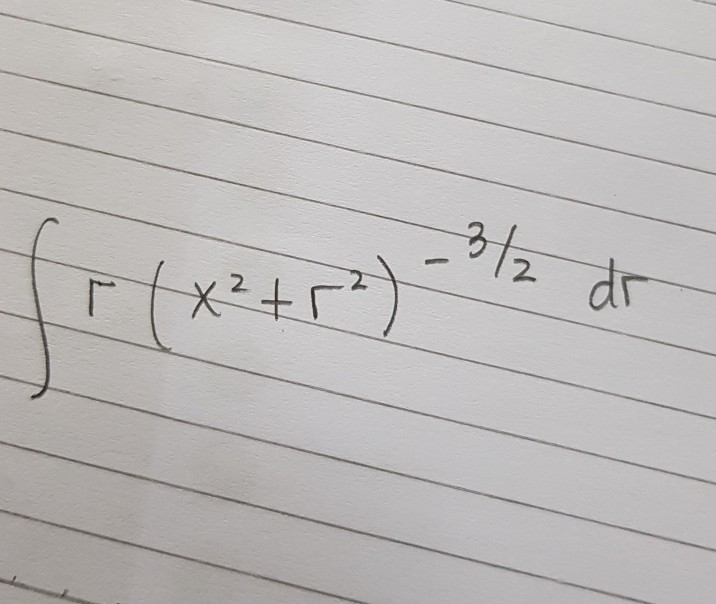 ∫ r (x² + r²)^(-3/2) dr